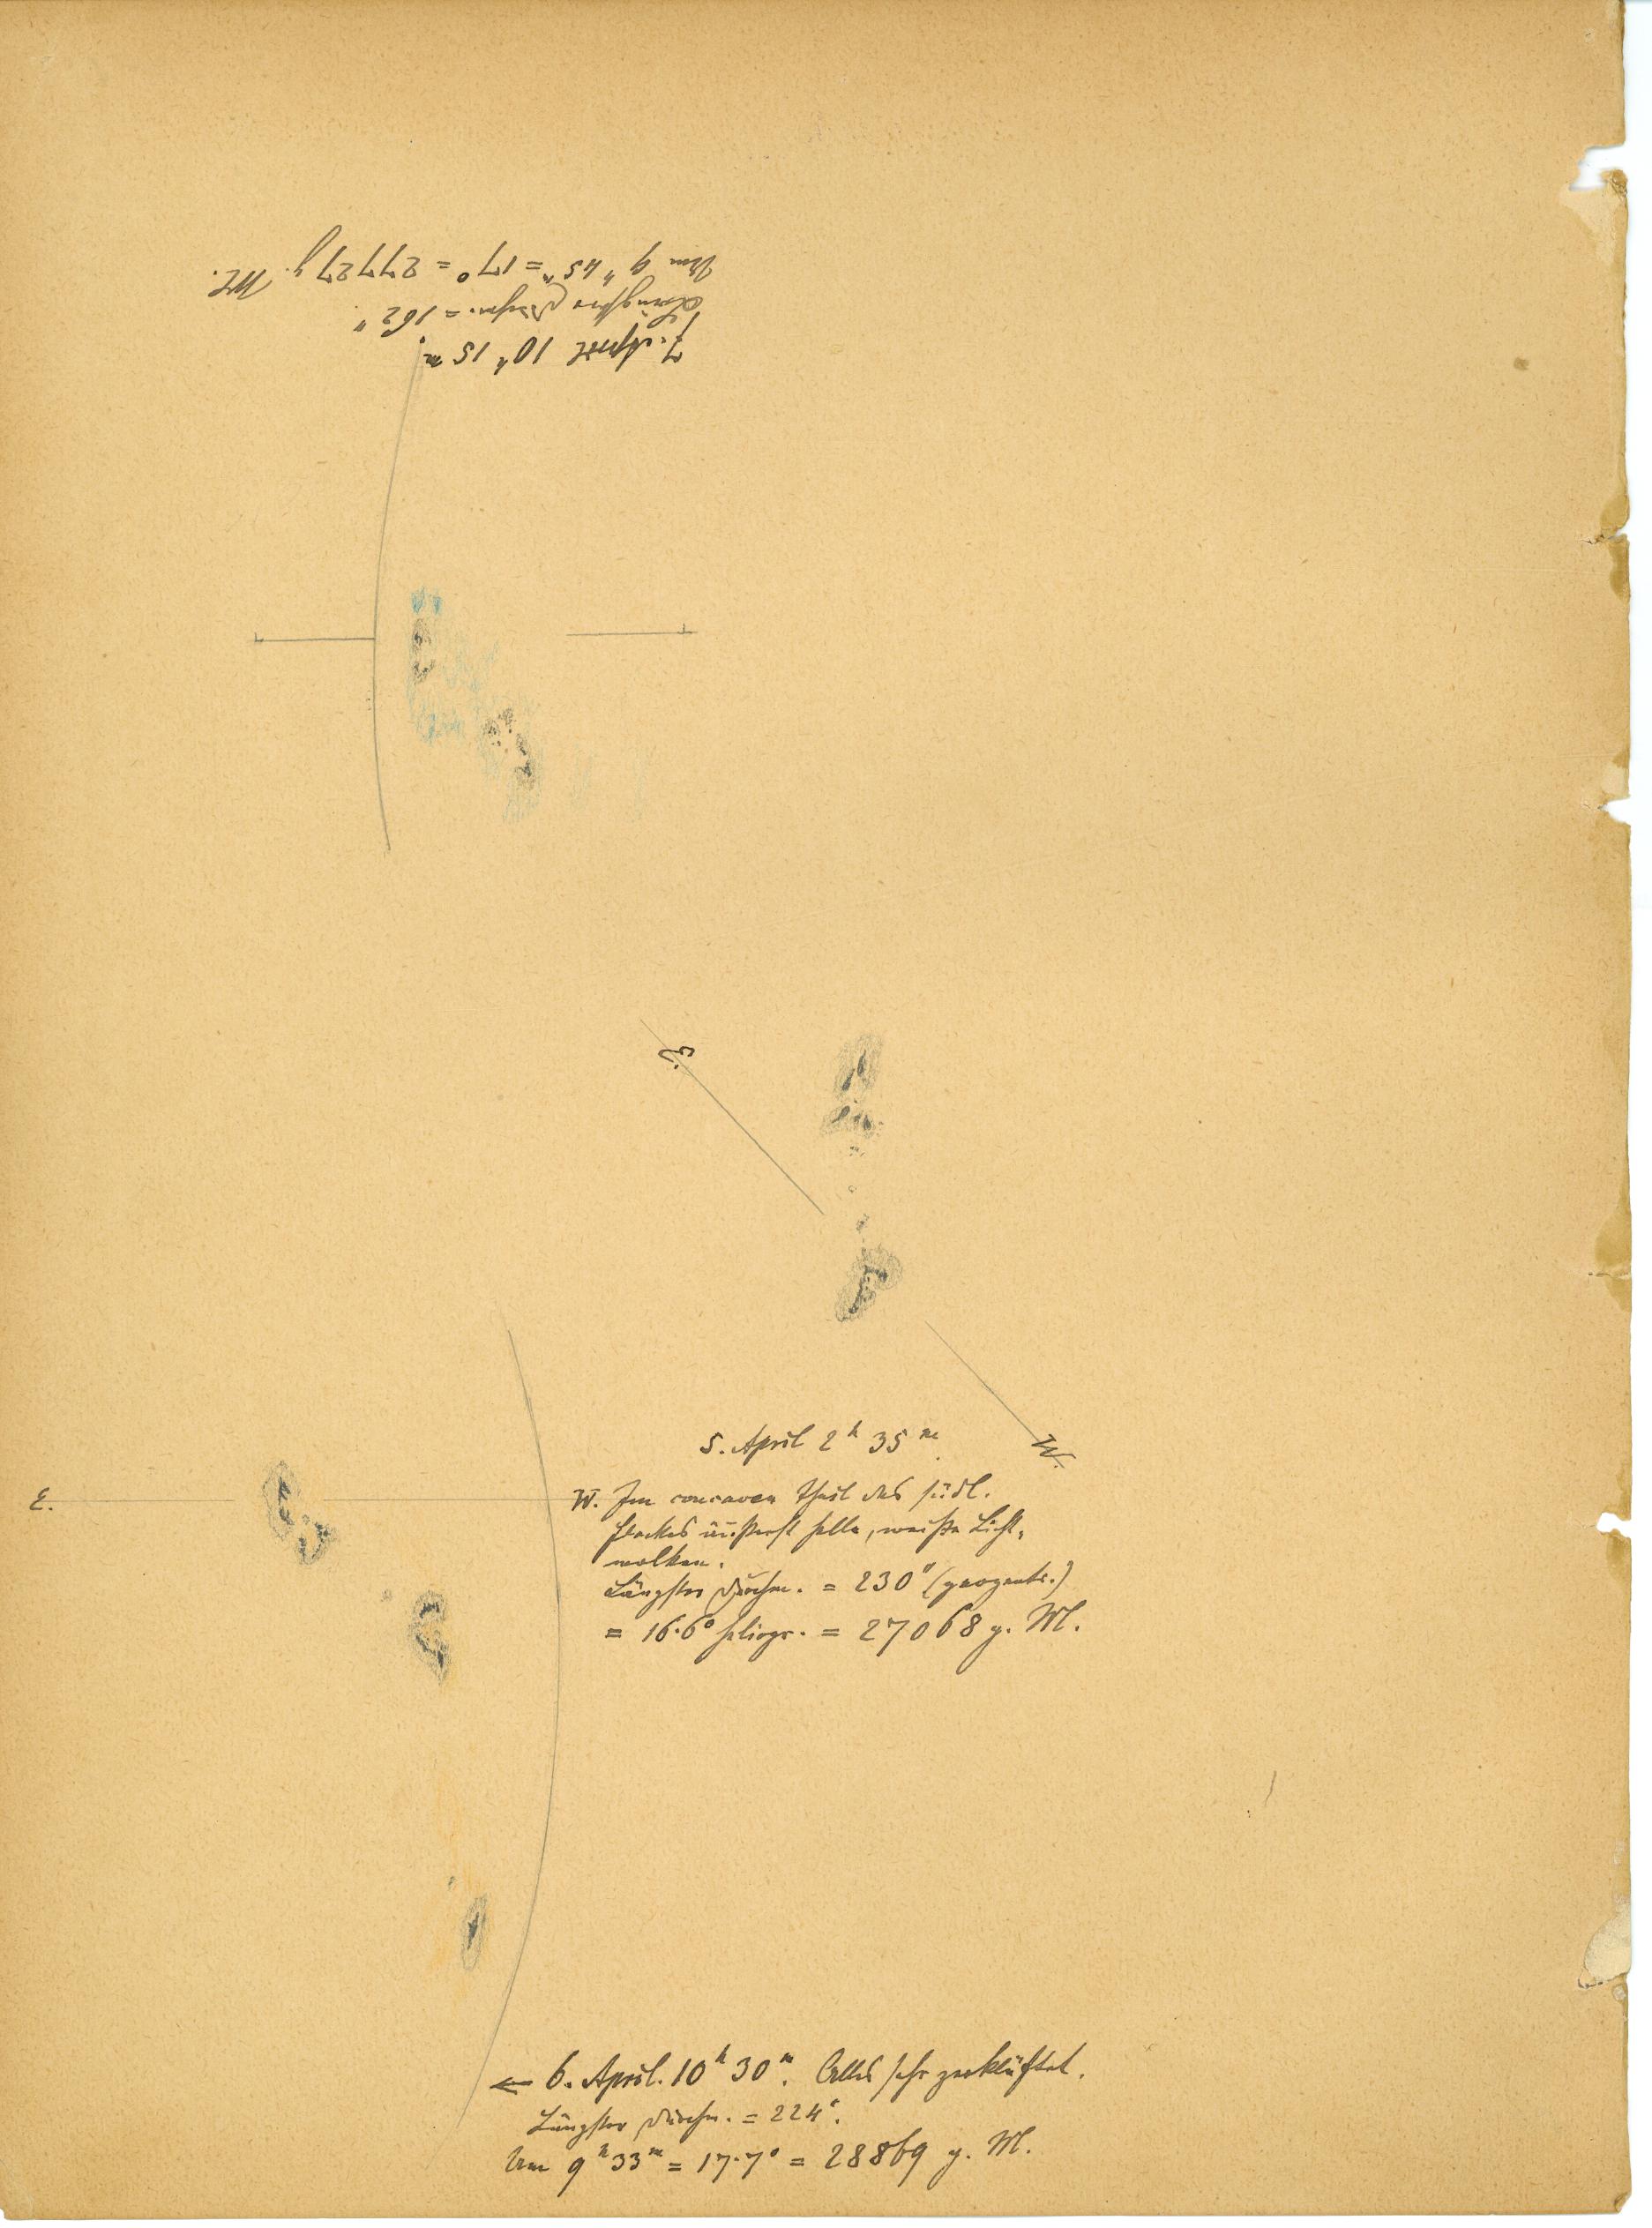 7. April 10h 15m.
Längster Durchm. = 162"
Um 9h 45m = 17° = 27727 g. Ml.
E.
W.
5. April 2h 35m.
E.
W. Im concaven Theil des südl.
Fleckes äußerst helle, weiße Licht-
wolken.
Längster Durchm. = 230" (geozentr.)
= 16.6° heliogr. = 27068 g. Ml.
← 6. April. 10h 30m. Alles sehr zerklüftet.
Längster Durchm. = 224".
Um 9h 33m = 17.7° = 28869 g. Ml.